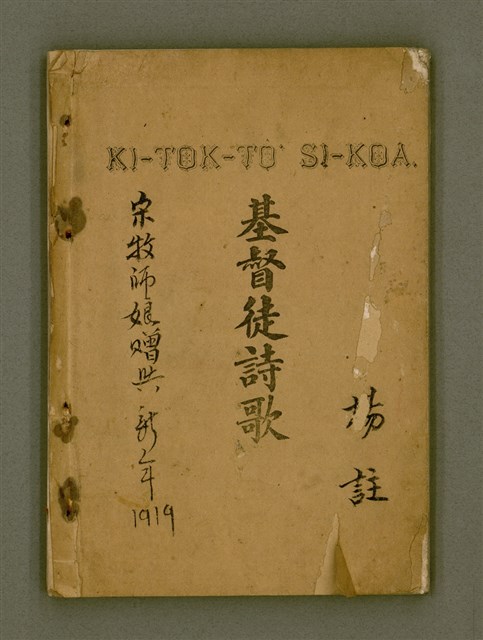 KI-TOK-TÔ SI-KOA.
基督徒詩歌
註
宋牧師娘贈與 新年
1919